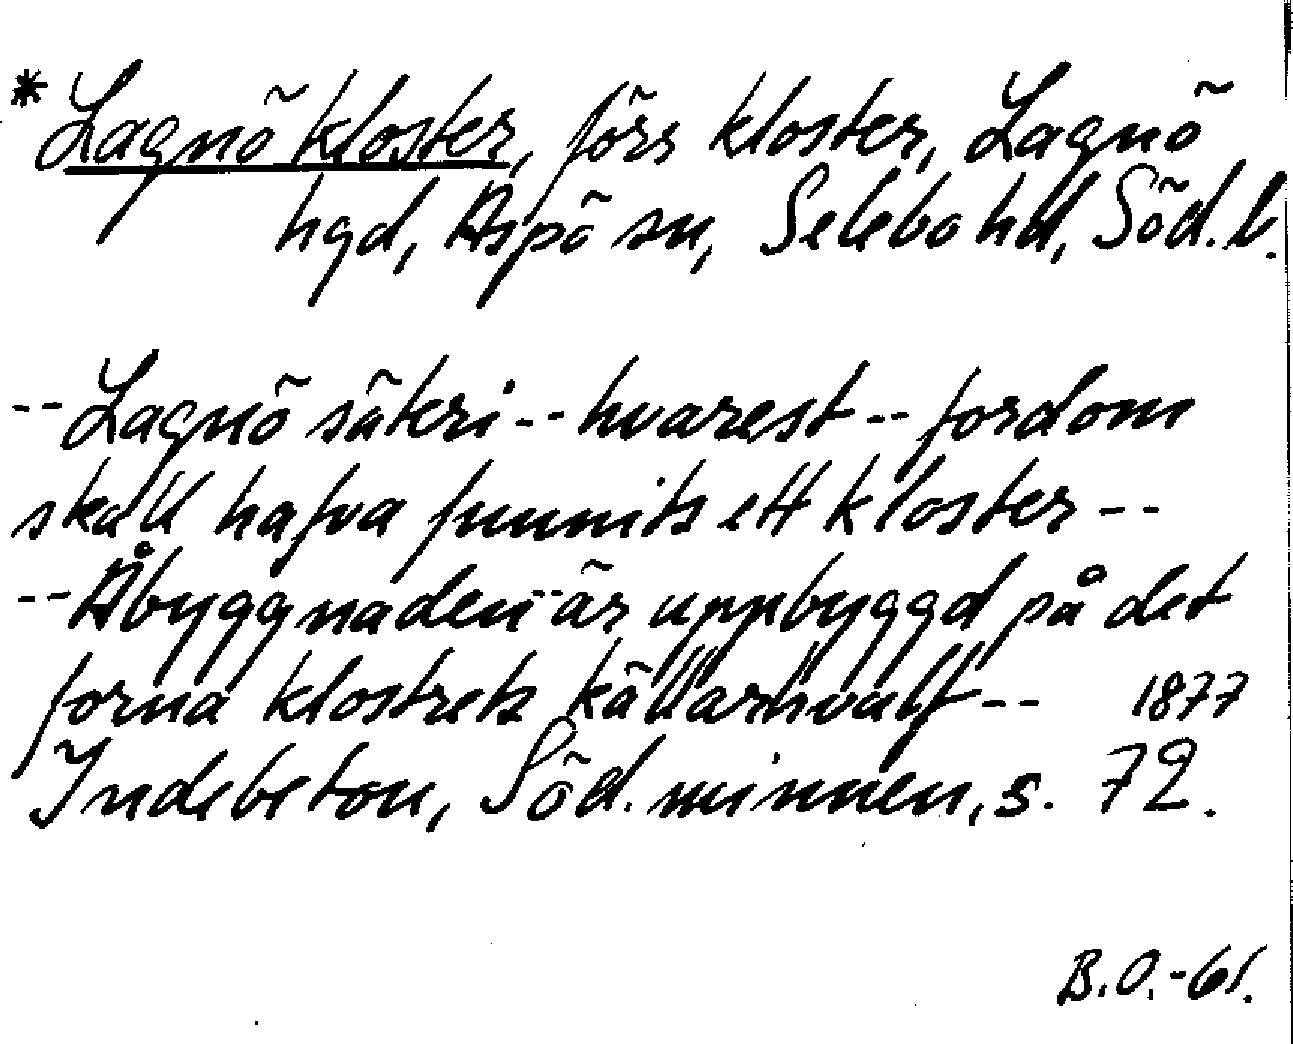 *Lagnö kloster, förs kloster, Lagnö
hgd, Aspö sn, Selebo hd, Söd. l.
--Lagnö säteri -- hvarest -- fordom
skall hafva funnits ett kloster --
--Åbyggnaden--är uppbyggd på det
forna klostrets källarhvalf -- 1877
Indebetou, Söd. minnen, s. 72.
B.O.-61.